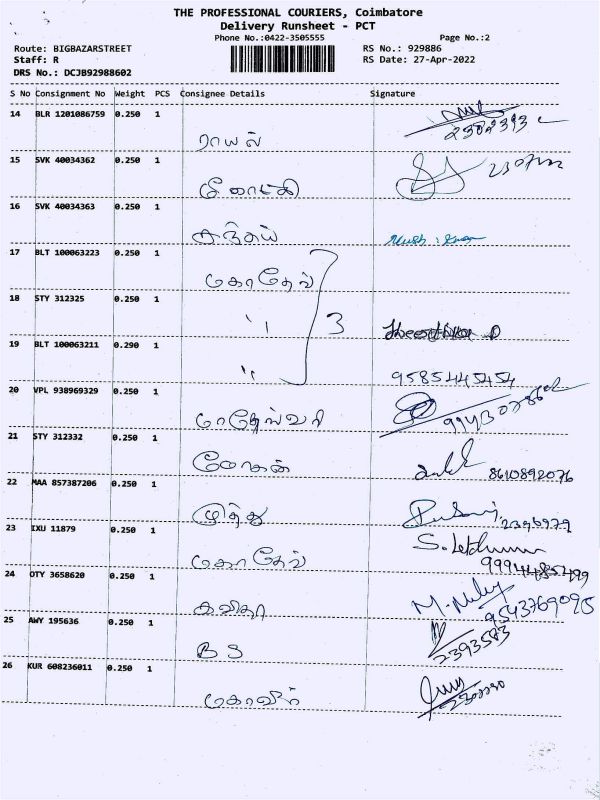 THE PROFESSIONAL COURIERS, Coimbatore
Delivery Runsheet - PCT
Phone No.:0422-3505555 Page No.:2
Route: BIGBAZARSTREET RS No.: 929886
Staff: R RS Date: 27-Apr-2022
DRS No.: DCJB92988602
S No Consignment No Weight PCS Consignee Details Signature
14 BLR 1201086759 0.250 1
ராயல்
15 SVK 40034362 0.250 1
மீனாட்சி
16 SVK 40034363 0.250 1
சஞ்சய்
17 BLT 100063223 0.250 1
மகாதேவ்
18 STY 312325 0.250 1
" 3
19 BLT 100063211 0.290 1
" 9585445454
20 VPL 938969329 0.250 1
மாதேஸ்வரி
21 STY 312332 0.250 1
மோகன் 8610892076
22 MAA 857387206 0.250 1
முத்து 2396979
23 IXU 11879 0.250 1
மகாதேவ்
24 OTY 3658620 0.250 1
கவிதா 9543769095
25 AWY 195636 0.250 1
B S 2393583
26 KUR 608236011 0.250 1
மகாவீர்